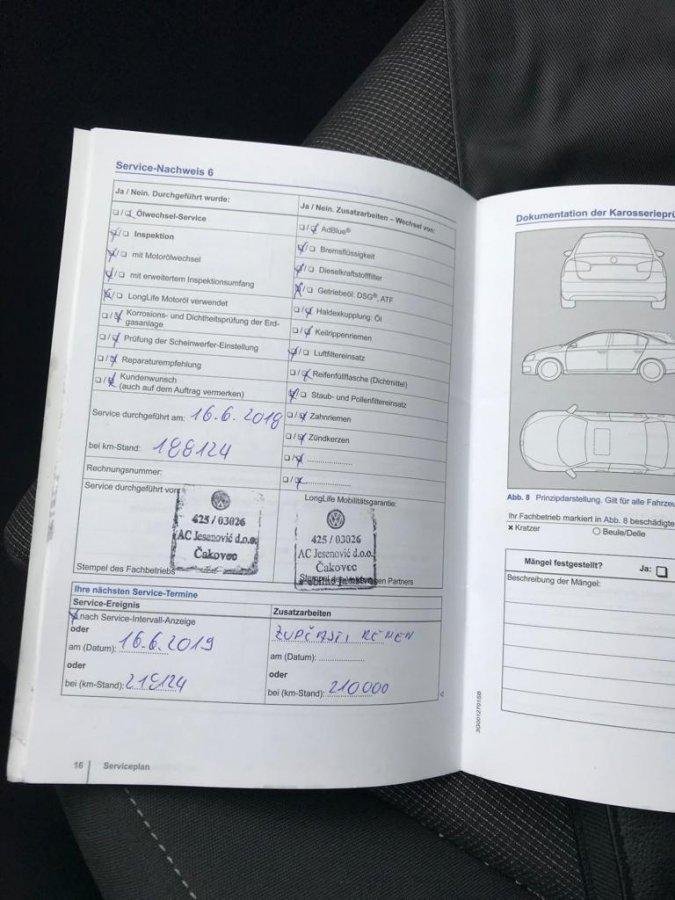 Service-Nachweis 6
Ja / Nein. Durchgeführt wurde:
❑ / ❑ Ölwechsel-Service
❑ / ❑ Inspektion
❑ / ❑ mit Motorölwechsel
❑ / ❑ mit erweitertem Inspektionsumfang
❑ / ❑ LongLife Motoröl verwendet
❑ / ❑ Korrosions- und Dichtheitsprüfung der Erd-
gasanlage
❑ / ❑ Prüfung der Scheinwerfer-Einstellung
❑ / ❑ Reparaturempfehlung
❑ / ❑ Kundenwunsch
(auch auf dem Auftrag vermerken)
Service durchgeführt am: 16.6.2018
bei km-Stand: 188124
Rechnungsnummer:
Ja / Nein. Zusatzarbeiten – Wechsel von:
❑ / ❑ AdBlue®
❑ / ❑ Bremsflüssigkeit
❑ / ❑ Dieselkraftstofffilter
❑ / ❑ Getriebeöl: DSG®, ATF
❑ / ❑ Haldexkupplung: Öl
❑ / ❑ Keilrippenriemen
❑ / ❑ Luftfiltereinsatz
❑ / ❑ Reifenfüllflasche (Dichtmittel)
❑ / ❑ Staub- und Pollenfiltereinsatz
❑ / ❑ Zahnriemen
❑ / ❑ Zündkerzen
❑ / ❑ ....................
❑ / ❑ ....................
Service durchgeführt von:
425 / 03026
AC Jesenović d.o.o.
Čakovec
Stempel des Fachbetriebs
LongLife Mobilitätsgarantie:
425 / 03026
AC Jesenović d.o.o.
Čakovec
Stempel des Partners
Ihre nächsten Service-Termine
Service-Ereignis
nach Service-Intervall-Anzeige
oder
am (Datum): 16.6.2019
oder
bei (km-Stand): 218124
Zusatzarbeiten
ZUPČASTI REMEN
am (Datum): ...............
oder
bei (km-Stand): 210000
16 Serviceplan
Dokumentation der Karosserieprü
Abb. 8 Prinzipdarstellung. Gilt für alle Fahrzeu
Ihr Fachbetrieb markiert in Abb. 8 beschädigte
× Kratzer ○ Beule/Delle
Mängel festgestellt? Ja: ❑
Beschreibung der Mängel: